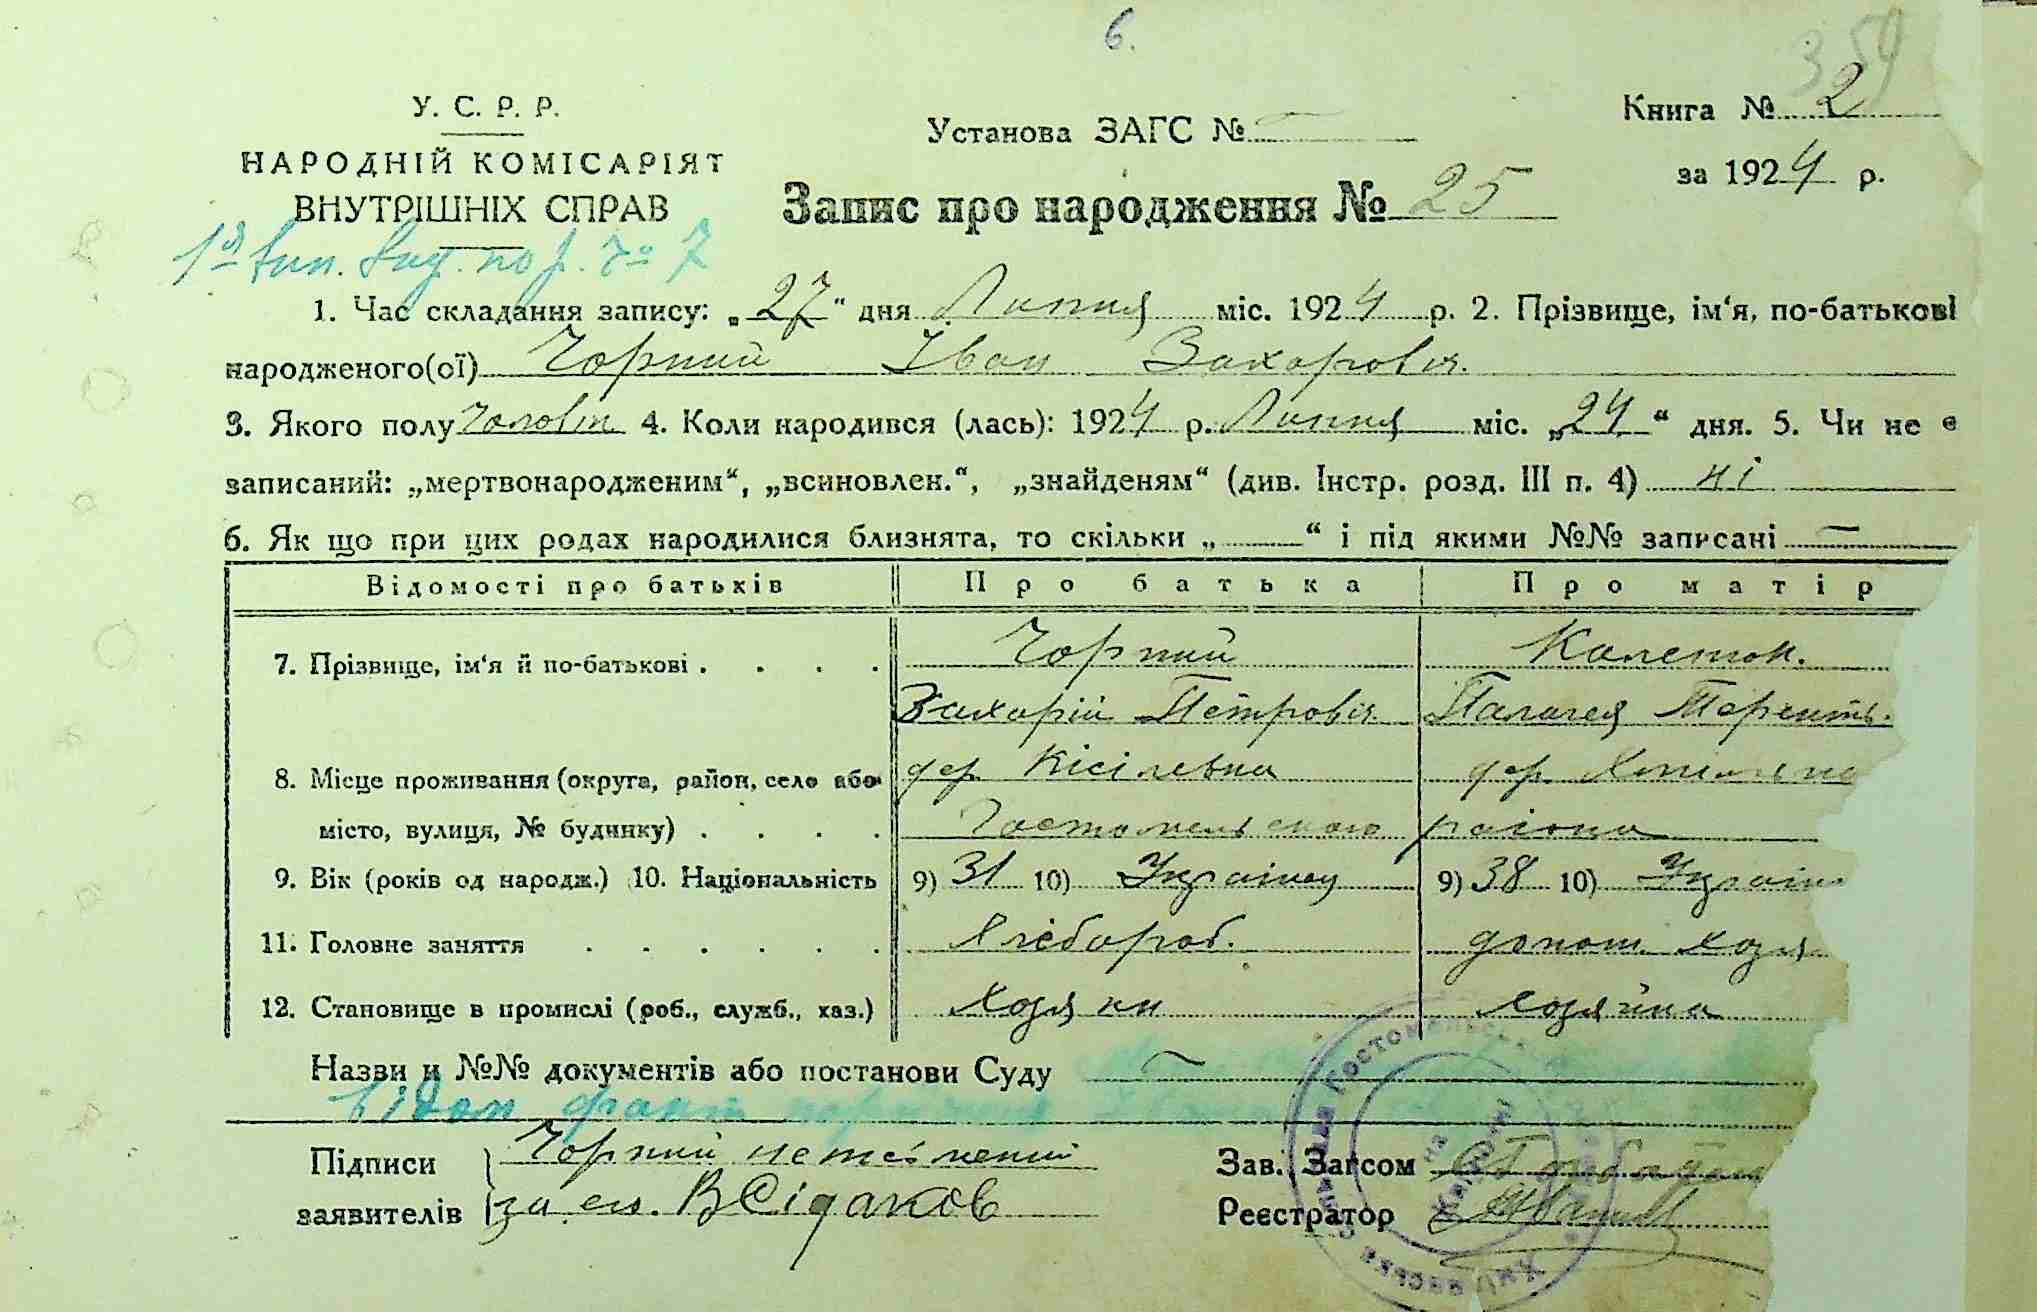 6.
359
У. С. Р. Р.
НАРОДНІЙ КОМІСАРІЯТ
ВНУТРІШНІХ СПРАВ
Установа ЗАГС № —
Книга № 2
за 1924 р.
Запис про народження № 25
1. Час складання запису: „27“ дня Липня міс. 1924 р. 2. Прізвище, ім‘я, по-батькові
народженого(ої) Чорний Іван Захарович.
3. Якого полу чоловіч 4. Коли народився (лась): 1924 р. Липня міс. „24“ дня. 5. Чи не є
записаний: „мертвонародженим“, „всиновлен.“, „знайденям“ (див. Інстр. розд. III п. 4) ні
6. Як що при цих родах народилися близнята, то скільки „ “ і під якими №№ записані —
Відомості про батьків Про батька Про матір
7. Прізвище, ім‘я й по-батькові . . . . Чорний
Захорій Петрович Палагея Теренть.
8. Місце проживання (округа, район, село або дер. Кісілевка дер.
місто, вулиця, № будинку) . . . . Гостомельського району
9. Вік (років од народж.) 10. Національність 9) 31 10) Украінец 9) 38 10) Украін
11. Головне заняття . . . . . . Хлебороб. домаш. хозя
12. Становище в промислі (роб., служб., хаз.) Хозяин хозяйка
Назви и №№ документів або постанови Суду —
Підписи Чорний
заявителів В Сідаков
Зав. Загсом
Реєстратор